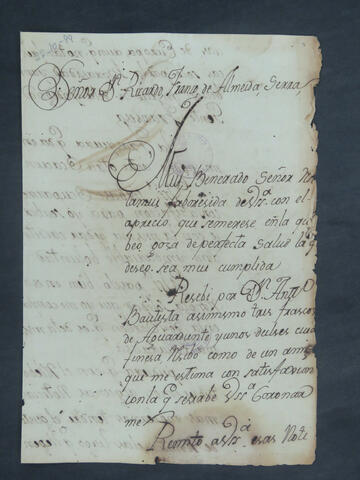 Señor Dn. Ricardo, Franco, de Almeida, Serra,
Mui, Benerado Señor
la mui faboresida de Vsa. con el
aprecio, que semerese en la que
beo goza de perfecta salud la q
deseo, sea mui cumplida
Resebi por Dn. Anto.
Bautista asimismo tres frascos
de Aguardiente y unos dulses cuia
finesa resibo como de un amigo
que me estima con satisfacion
con la q sesirbe Vsa. Coronar
me
Remito a Vsa. esas Noti